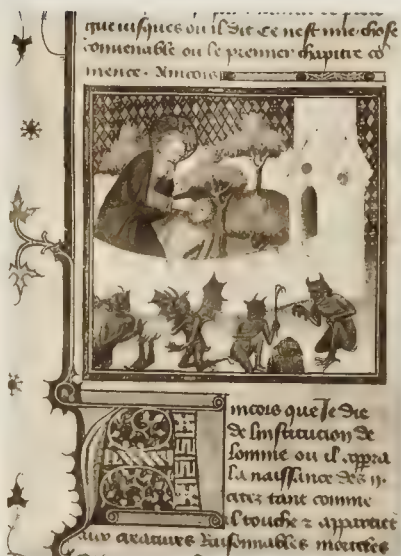 que iusques ou il dit Ce nest mie chose
convenable ou le premier chapitre co
mence. Aincois
Aincois que Je die
de linstitucion de
lomme ou il appra
la naissance des ii.
citez tant comme
il touche & appartiēt
aux creatures Raisonnables mortelles